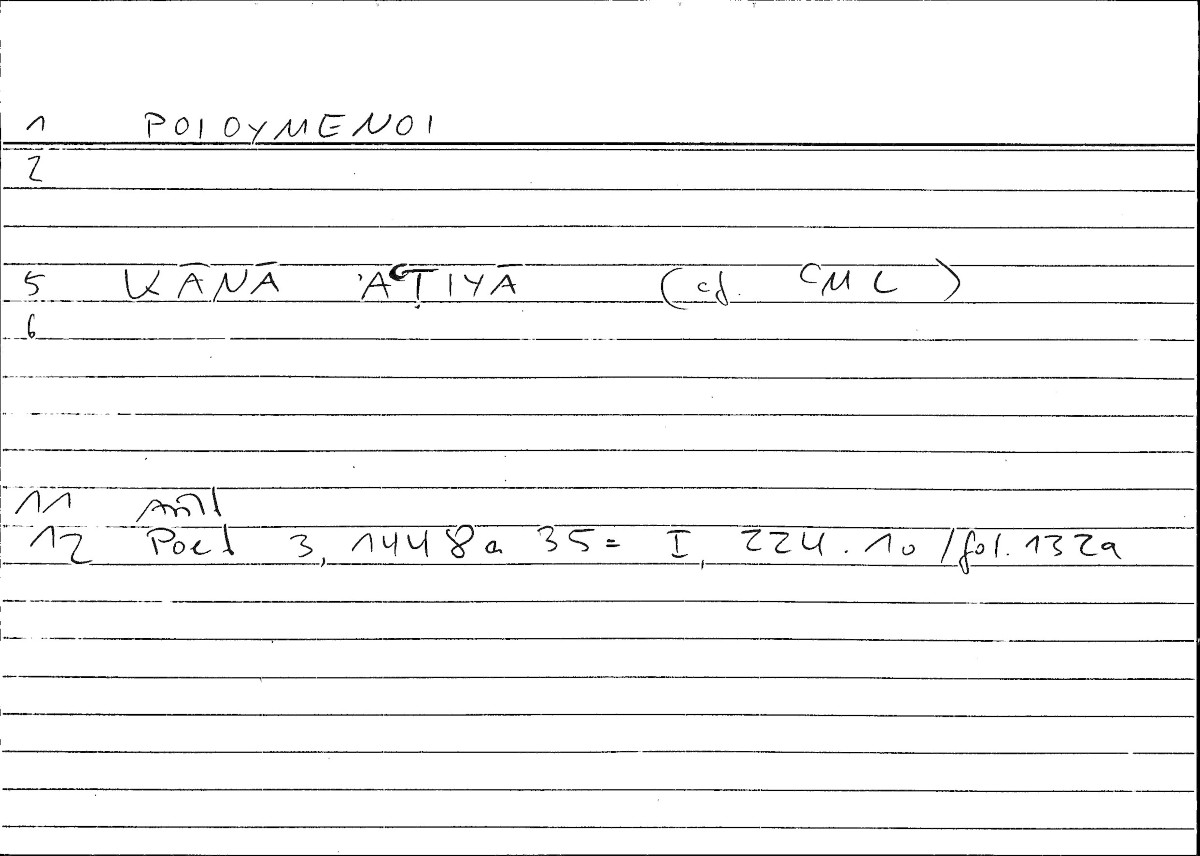 1 POIOYMENOI
2
5 KĀNĀ 'AʿṬIYĀ (cf. CML)
6
11 Arist
12 Poet 3, 1448a 35 = I, 224.10 / fol. 132a